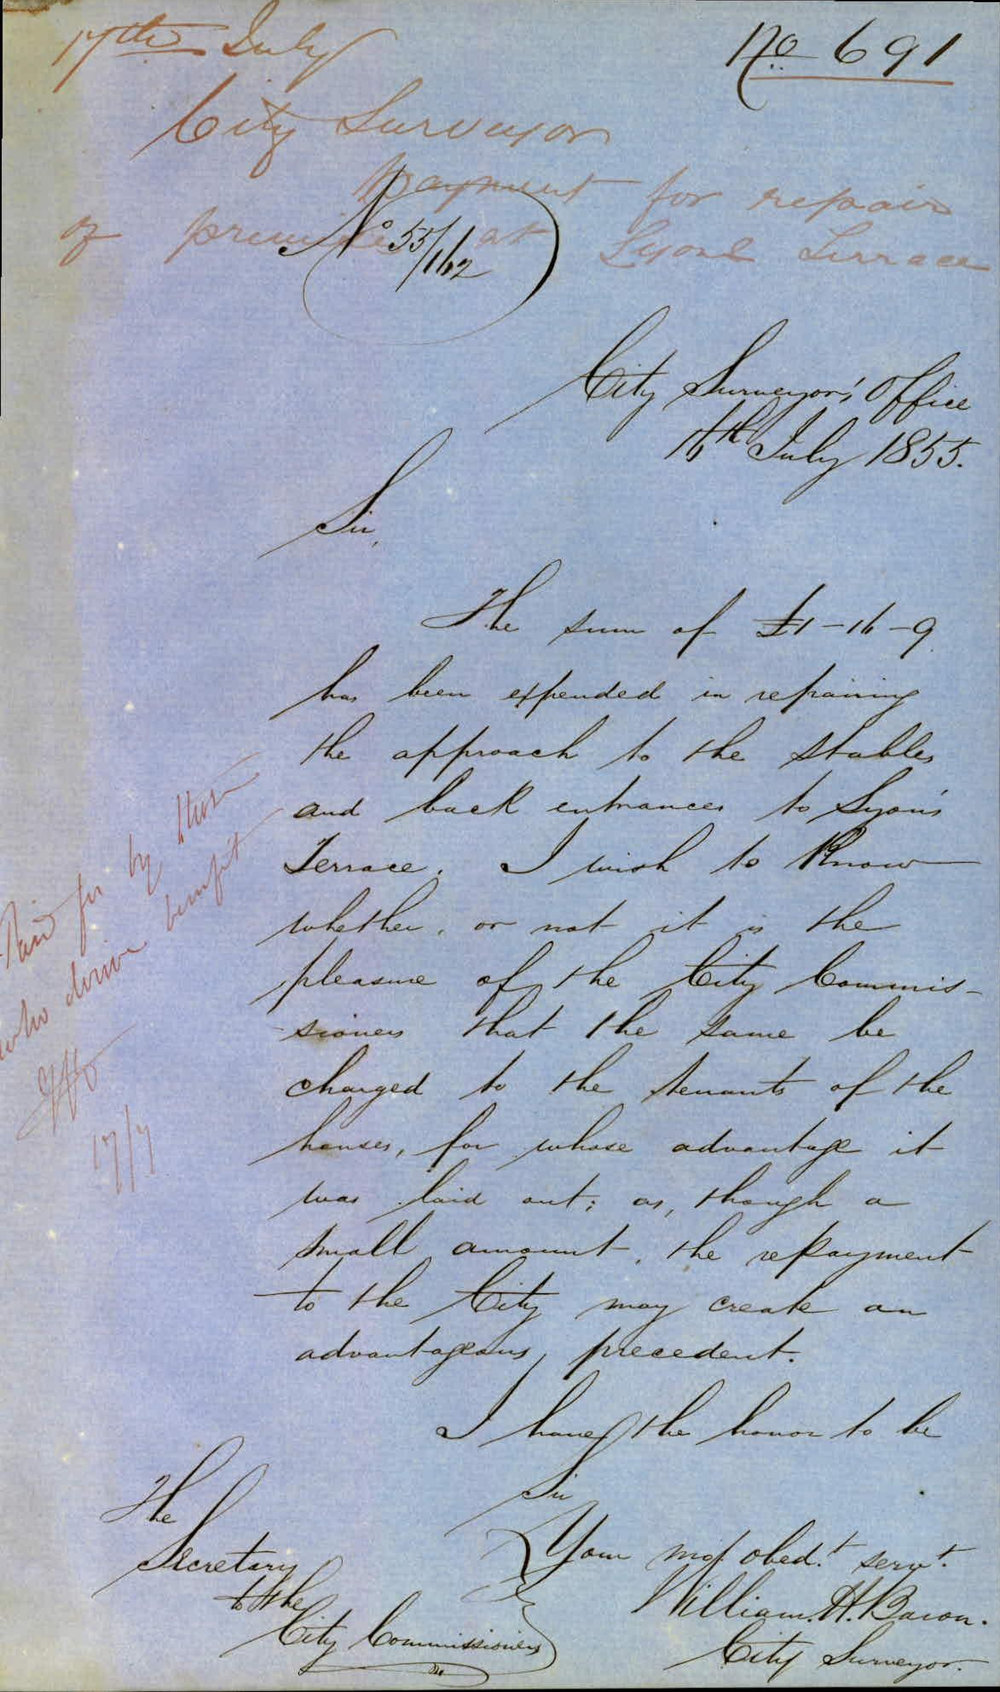 17th July
No 691
City Surveyor
Payment for repair
of premises at Lyons Terrace
No 55/162
City Surveyor's Office
16th July 1855.
Sir,
The sum of £1-16-9
has been expended in repairing
the approach to the stables
and back entrances to Lyon's
Terrace. I wish to know
whether, or not it is the
pleasure of the City Commis-
-sioners that the same be
charged to the tenants of the
houses, for whose advantage it
was laid out; as, though a
small amount, the repayment
to the City may create an
advantageous precedent.
I have the honor to be
Sir
Your mot obed.t serv.t
William. H. Baron.
City Surveyor.
The
Secretary
to the
City Commissioners
Paid for by those
who derive benefit
17/7